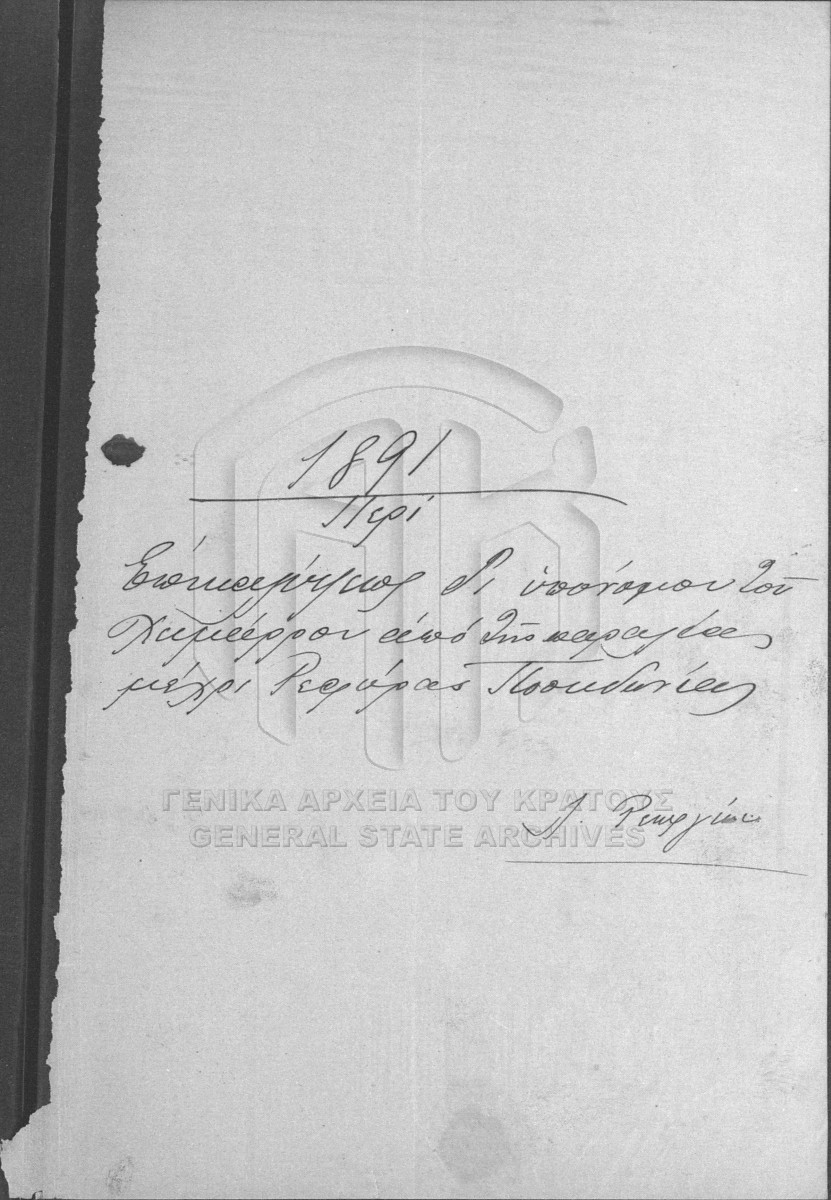 1891
Περί
Επικαλύψεως δι' υπονόμου του
Χειμάρρου από της παραλίας
μέχρι Γεφύρας Ποσειδωνίας
ΓΕΝΙΚΑ ΑΡΧΕΙΑ ΤΟΥ ΚΡΑΤΟΥΣ
GENERAL STATE ARCHIVES